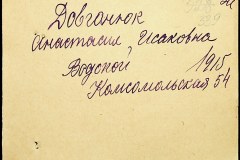 Довганюк
Анастасия Исаковна
Водской 1915
Комсомольская 54